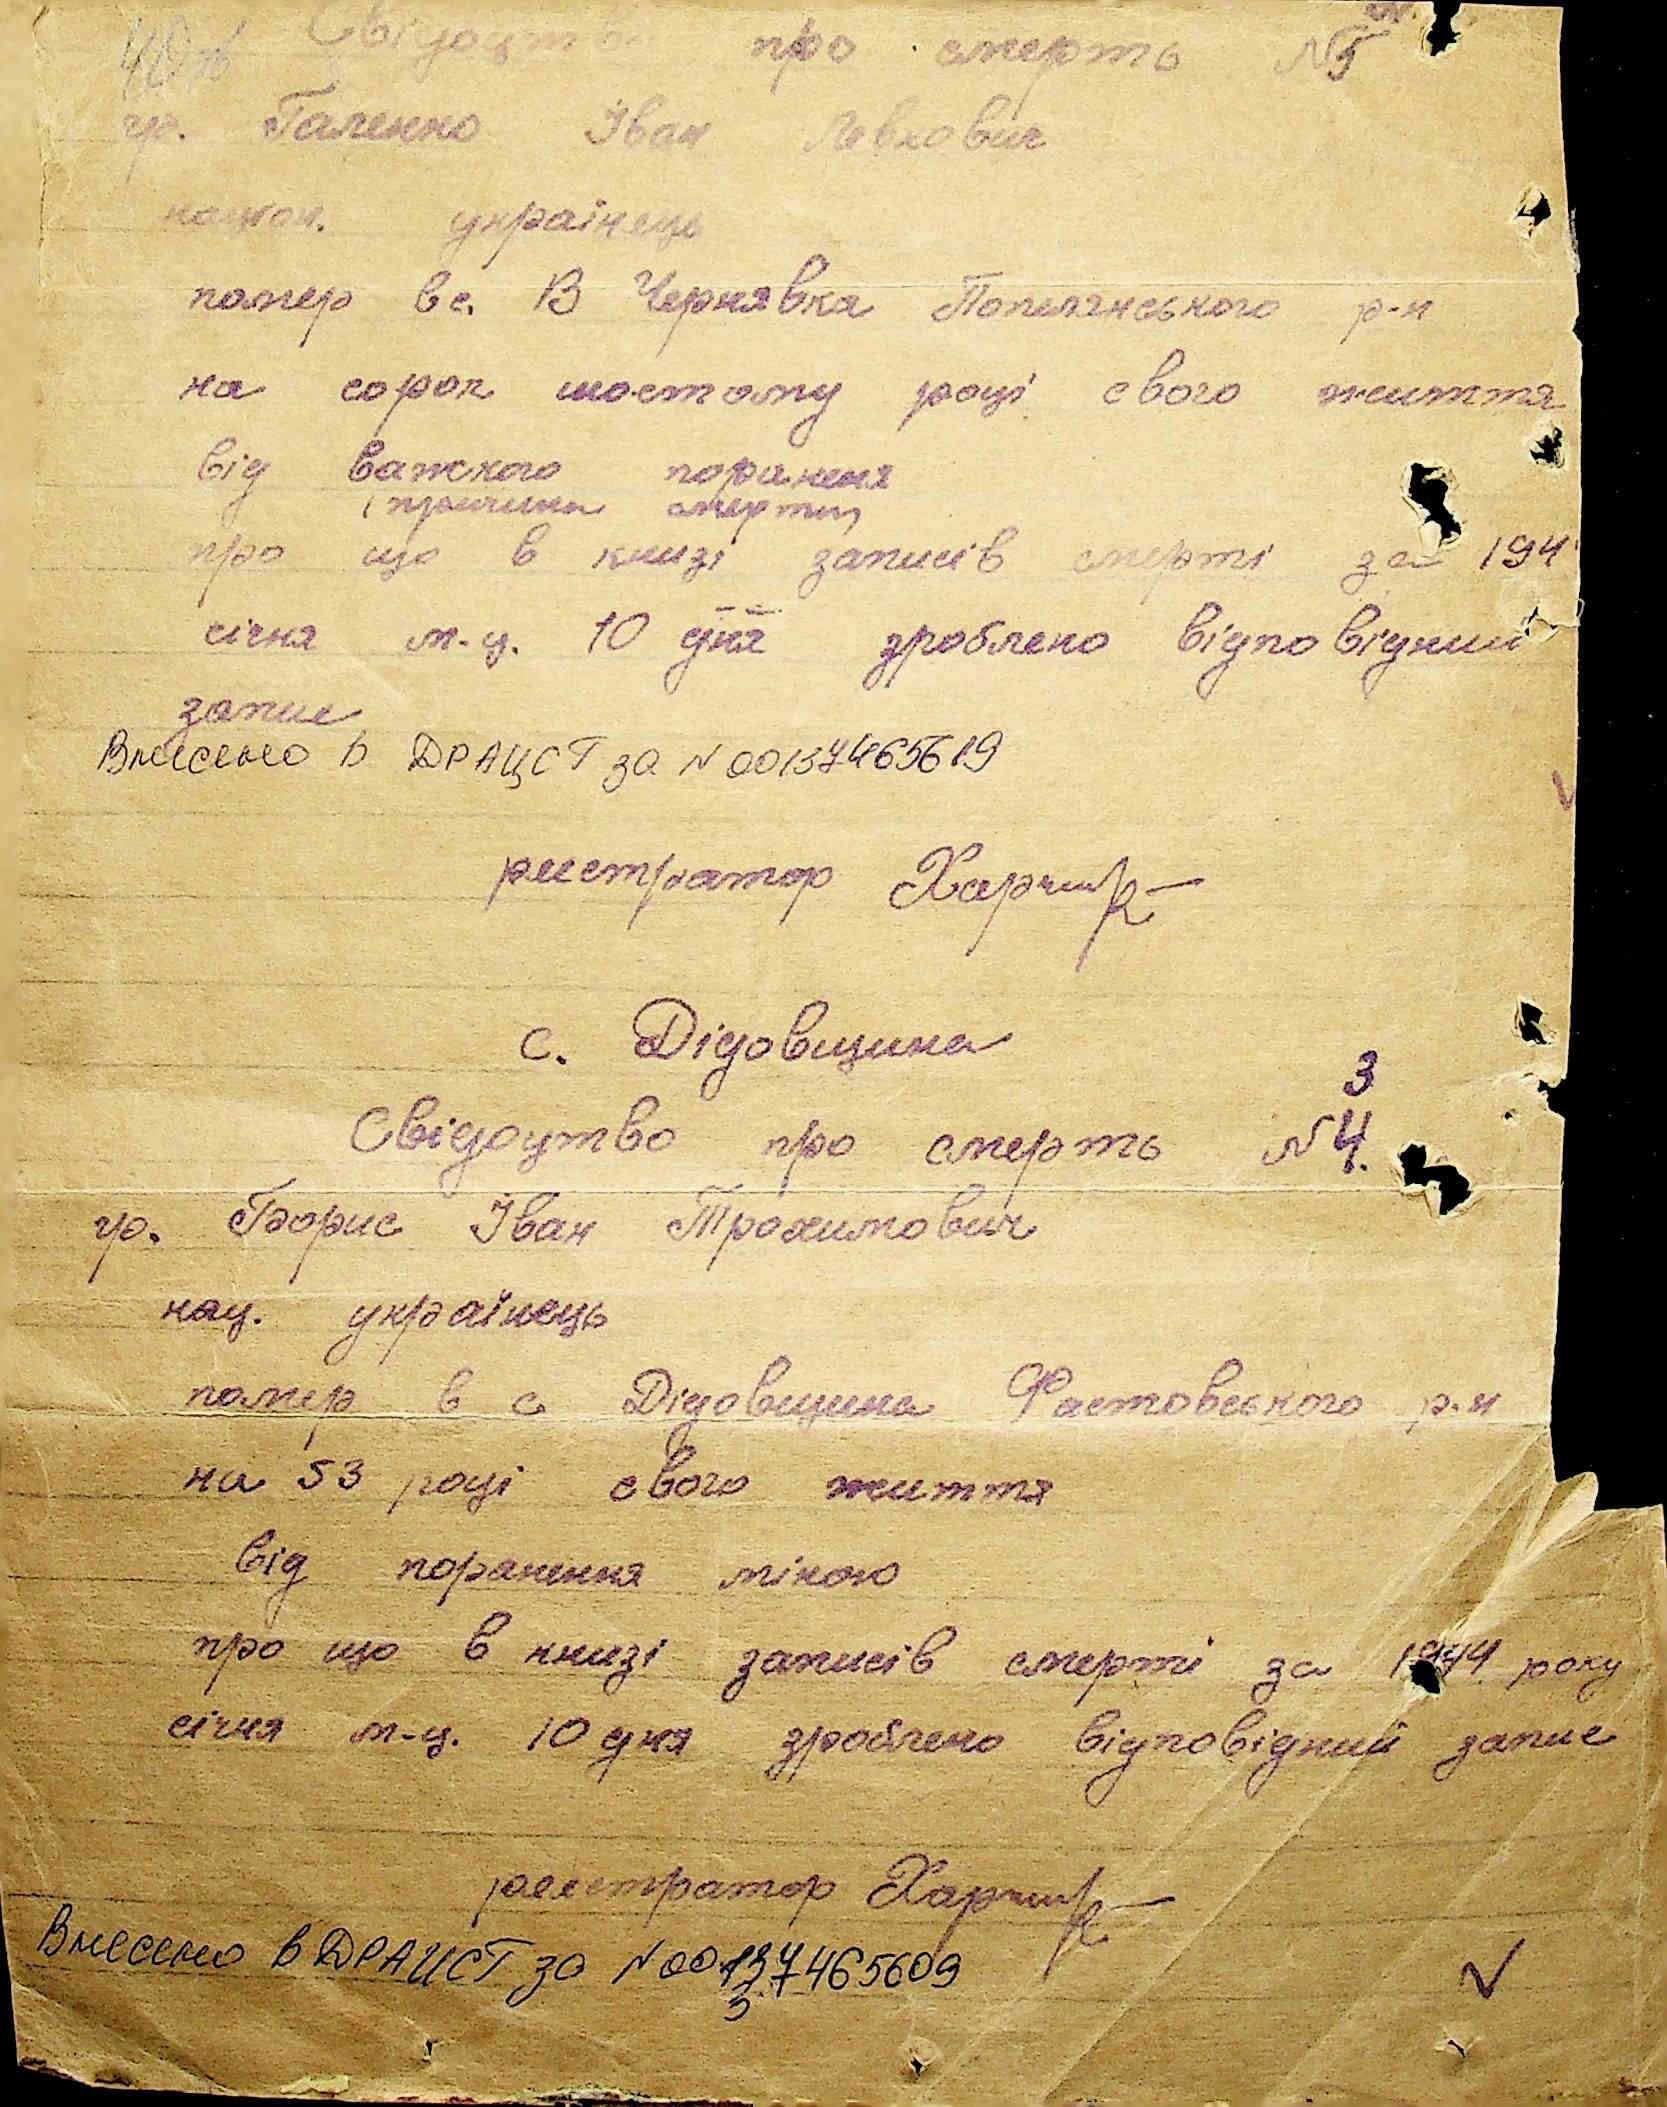 Свідоцтв про смерть №5
гр. Галенко Іван Левкович
націон. українець
помер в с. В Чернявка Попелянського р-н
на сорок шостому році свого життя
від важкого пораненя
(причина смерти)
про що в книзі записів смерті за 194
січня м-ц. 10 дня зроблено відповідний
запис
Внесено в ДРАЦСГ за N 00137465619
реєстратор
с. Дідовщина
3
Свідоцтво про смерть №4.
гр. Борис Іван Трохимович
нац. українець
помер в с Дідовщина Фастовського р-н
на 53 році свого життя
від поранення міною
про що в книзі записів смерті за 1944 року
січня м-ц. 10 дня зроблено відповідний запис
реєстратор
Внесено в ДРАЦСГ за N 00137465609